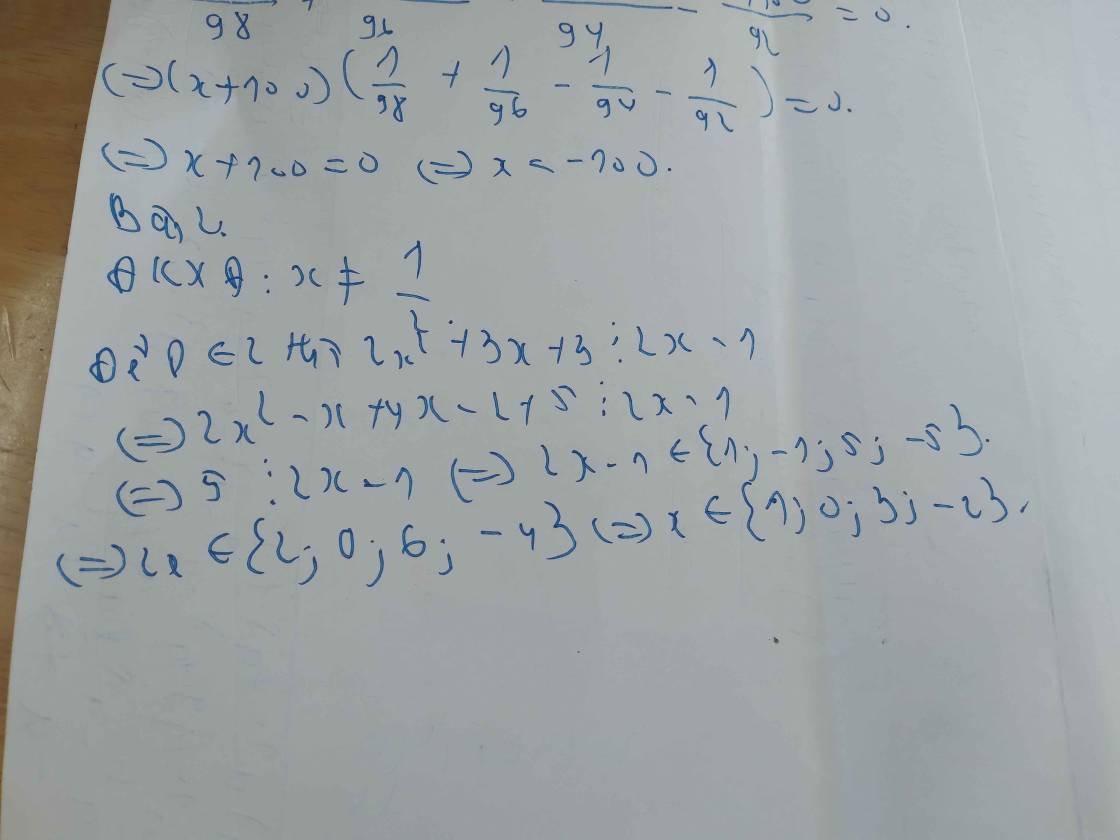 98 96 94 - 100/92 = 0.
(=>(x+100)(1/98 + 1/96 - 1/94 - 1/92) = 0.
(=> x+100 = 0 (=> x = -100.
Bài 2.
ĐKXĐ: x ≠ 1/2
Để P ∈ Z thì 2x² + 3x + 3 ⋮ 2x - 1
(=> 2x² - x + 4x - 2 + 5 ⋮ 2x - 1
(=> 5 ⋮ 2x - 1 (=> 2x - 1 ∈ {1; -1; 5; -5}.
(=> 2x ∈ {2; 0; 6; -4} (=> x ∈ {1; 0; 3; -2}.